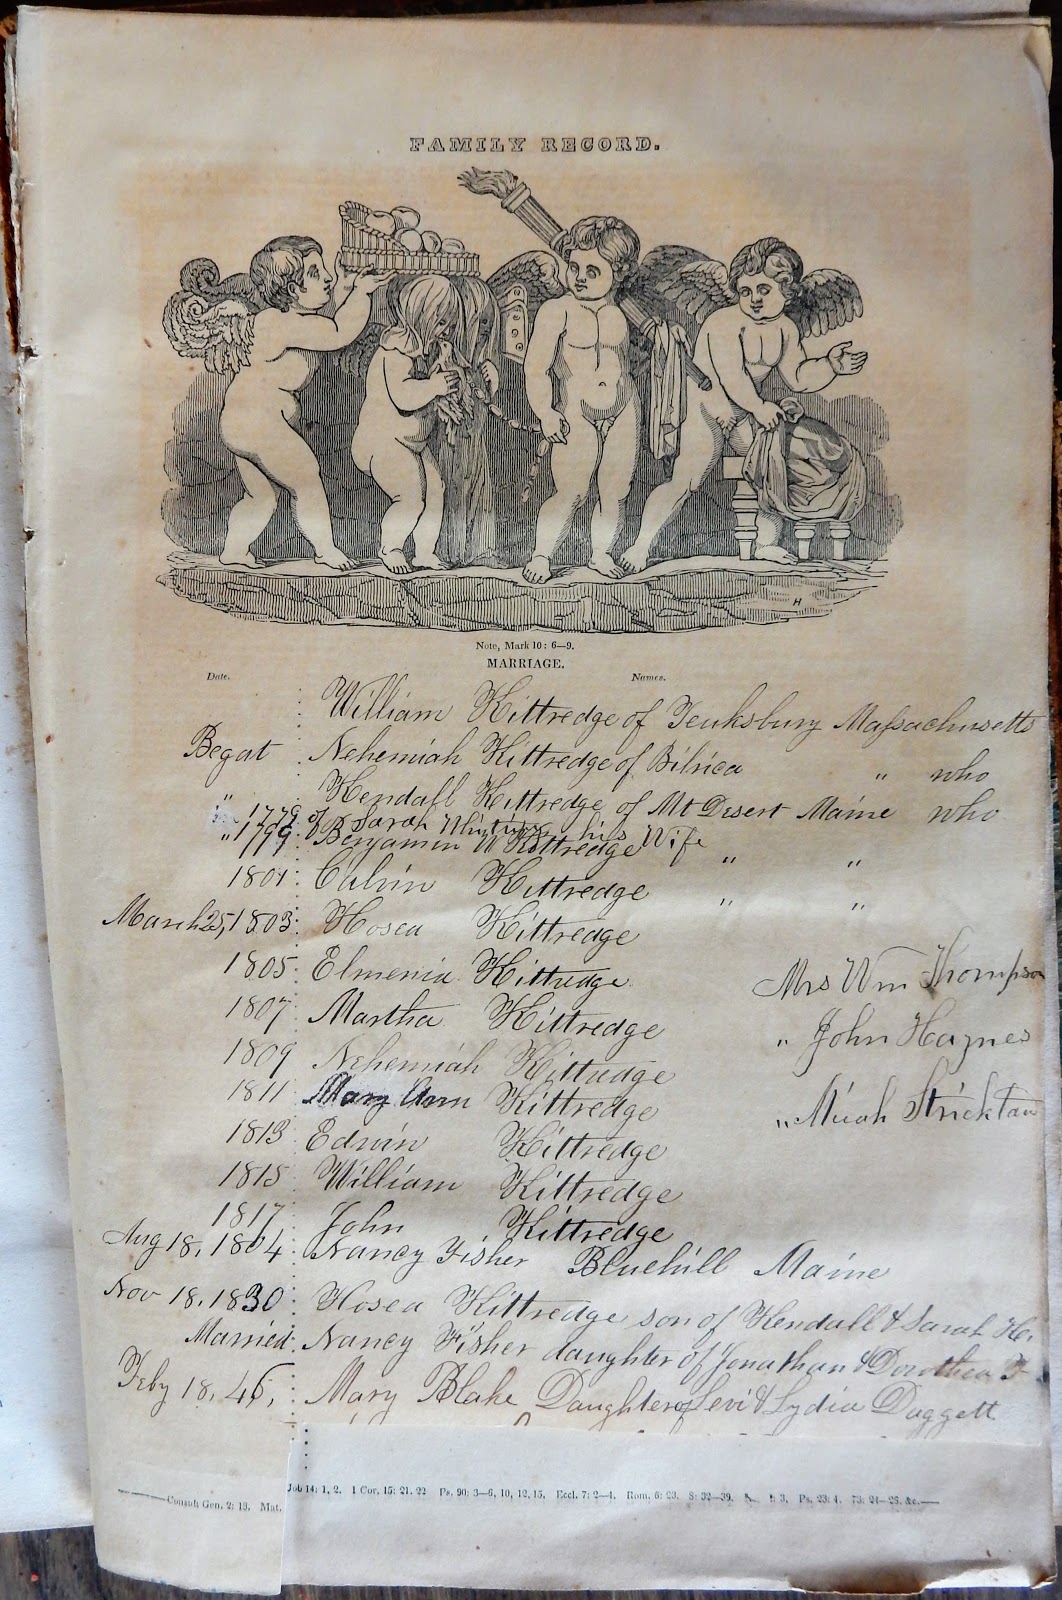 FAMILY RECORD.
H
Note, Mark 10: 6—9.
MARRIAGE.
Date. Names.
William Kittredge of Teuksbury Massachusetts
Begat Nehemiah Kittredge of Bilrica " who
" Kendall Kittredge of Mt Desert Maine who
1779 of Sarah Whiting his Wife
" 1799 Benjamin W Kittredge " "
1801 Calvin Kittredge " "
March 25, 1803 Hosea Kittredge
1805 Elmenia Kittredge Mrs Wm Thompson
1807 Martha Kittredge " John Haynes
1809 Nehemiah Kittredge
1811 Mary Ann Kittredge " Micah
1813 Edwin Kittredge
1815 William Kittredge
1817 John Kittredge
Aug 18, 1804 Nancy Fisher Bluehill Maine
Nov 18, 1830 Hosea Kittredge son of Kendall & Sarah K.
Married Nancy Fisher daughter of Jonathan & Dorothea F
Feby 18, 46, Mary Blake Daughter of Levi & Lydia Daggett
Consult Gen. 2: 18. Mat. Job 14: 1, 2. 1 Cor. 15: 21. 22 Ps. 90: 3—6, 10, 12, 15. Eccl. 7: 2—4. Rom. 6: 23. 8: 32—39. 3, Ps. 23: 4. 73: 24—26. &c.